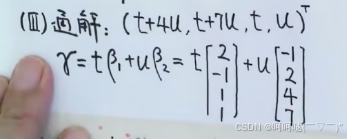 (Ⅲ)通解:(t+4u,t+7u,t,u)ᵀ
γ=tβ₁+uβ₂=t[2 -1 1 1]+u[-1 2 4 7]
CSDN @呵呵哒(￣▽￣)"